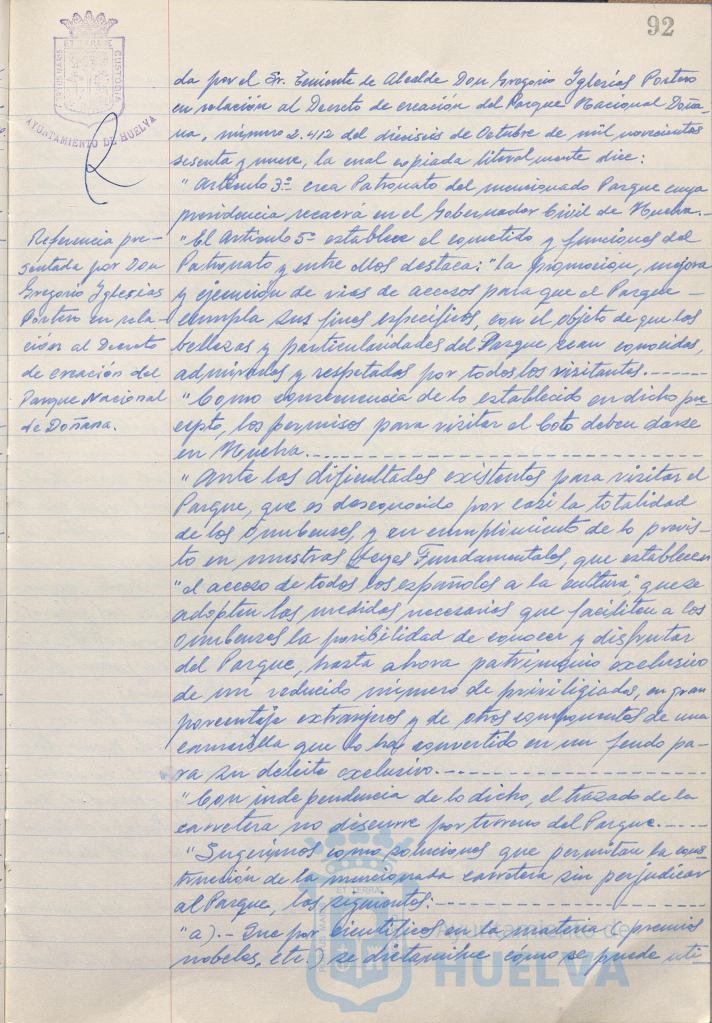 92
PORTUS MARIS
ET TERRAE
CUSTODIA
AYUNTAMIENTO DE HUELVA
Referencia pre-
sentada por Don
Gregorio Yglesias
Portero en rela-
ción al Decreto
de creación del
Parque Nacional
de Doñana.
da por el Sr. Teniente de Alcalde Don Gregorio Yglesias Portero
en relación al Decreto de creación del Parque Nacional Doña-
na, número 2.412 del dieciseis de Octubre de mil novecientos
sesenta y nueve, la cual copiada literalmente dice:
"Artículo 3º crea Patronato del mencionado Parque cuya
presidencia recaerá en el Gobernador Civil de Huelva.-
"El Artículo 5º establece el cometido y funciones del
Patronato y entre ellos destaca: "la promoción, mejora
y ejecución de vias de accesos para que el Parque -
cumpla sus fines específicos, con el objeto de que las
bellezas y particularidades del Parque sean conocidas,
admiradas y respetadas por todos los visitantes.------
"Como consecuencia de lo establecido en dicho pre-
cepto, los permisos para visitar el Coto deben darse
en Huelva.--------------------
"Ante las dificultades existentes para visitar el
Parque, que es desconocido por casi la totalidad
de los Onubenses, y en cumplimiento de lo previs-
to en nuestras Leyes Fundamentales, que establecen
"el acceso de todos los españoles a la cultura", que se
adopten las medidas necesarias que faciliten a los
Onubenses la posibilidad de conocer y disfrutar
del Parque, hasta ahora patrimonio exclusivo
de un reducido número de priviligiados, en gran
porcentaje extranjeros y de otros componentes de una
camarilla que lo han convertido en un feudo pa-
ra su deleite exclusivo.--------------
"Con independencia de lo dicho, el trazado de la
carretera no discurre por terreno del Parque.-----
"Sugerimos como soluciones que permitan la cons-
trucción de la mencionada carretera sin perjudicar
al Parque, las siguientes:---------------
"a).- Que por científicos en la materia (premios
nobeles, etc.) se dictamine cómo se puede uti-
PORTUS MARIS
ET TERRAE
CUSTODIA
Ayuntamiento de
HUELVA